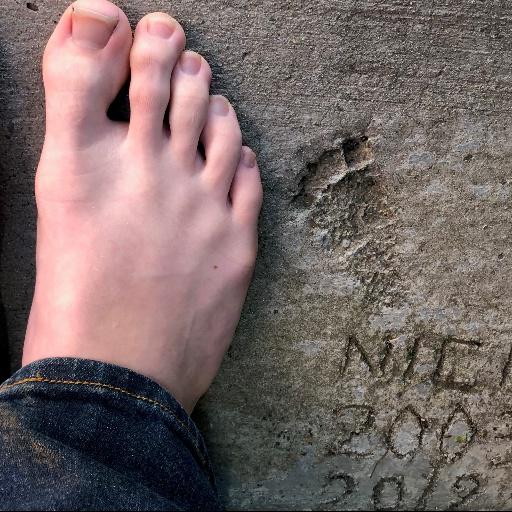 NIC
200
2012